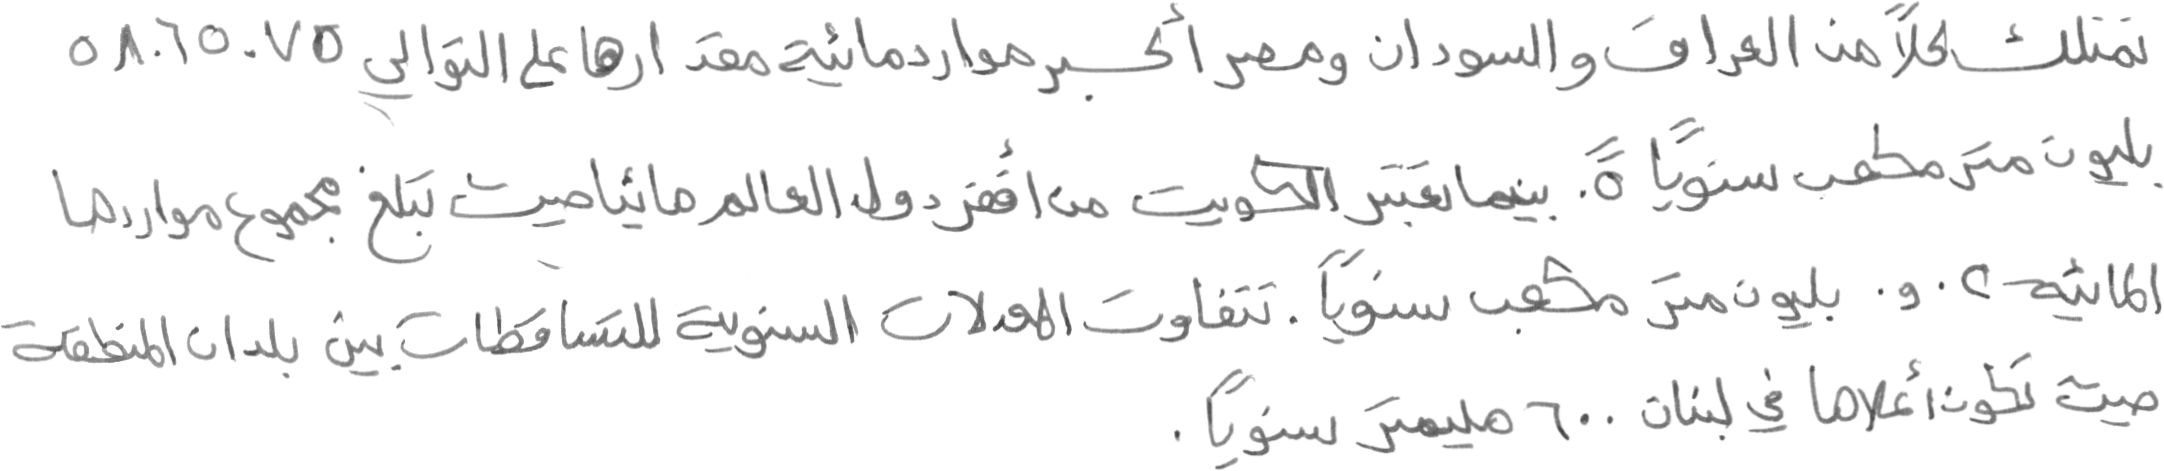 تمتلك كلاً من العراق والسودان ومصر أكبر موارد مائية مقدارها على التوالي ٧٥.٦٥.٥٨
بليون متر مكعب سنوياً ة. بينما يعتبر الكويت من افقر دول العالم مائيا حيث تبلغ مجموع مواردها
المائية ٠.٢ و. بليون متر مكعب سنوياً. تتفاوت المعدلات السنوية للتساقطات بين بلدان المنطقة
حيث تكون أعلاها في لبنان ٦٠٠ مليمتر سنوياً.